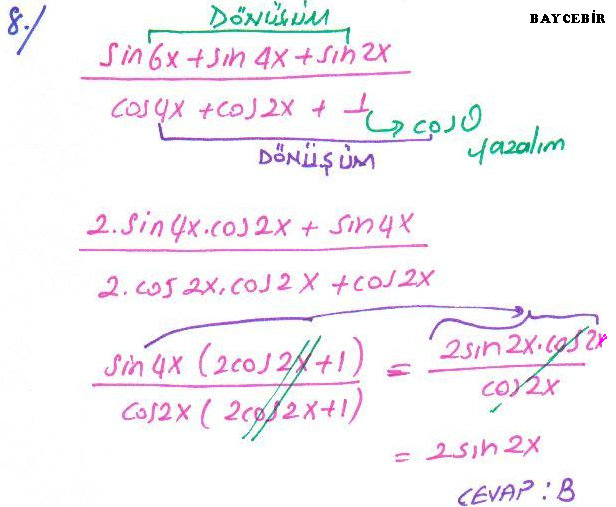 8./ DÖNÜŞÜM BAYCEBİR
sin6x + sin4x + sin2x
cos4x + cos2x + 1 → cos0 yazalım
DÖNÜŞÜM
2.sin4x.cos2x + sin4x
2.cos2x.cos2x + cos2x
sin4x (2cos2x+1) = 2sin2x.cos2x
cos2x (2cos2x+1) cos2x
= 2sin2x
CEVAP : B